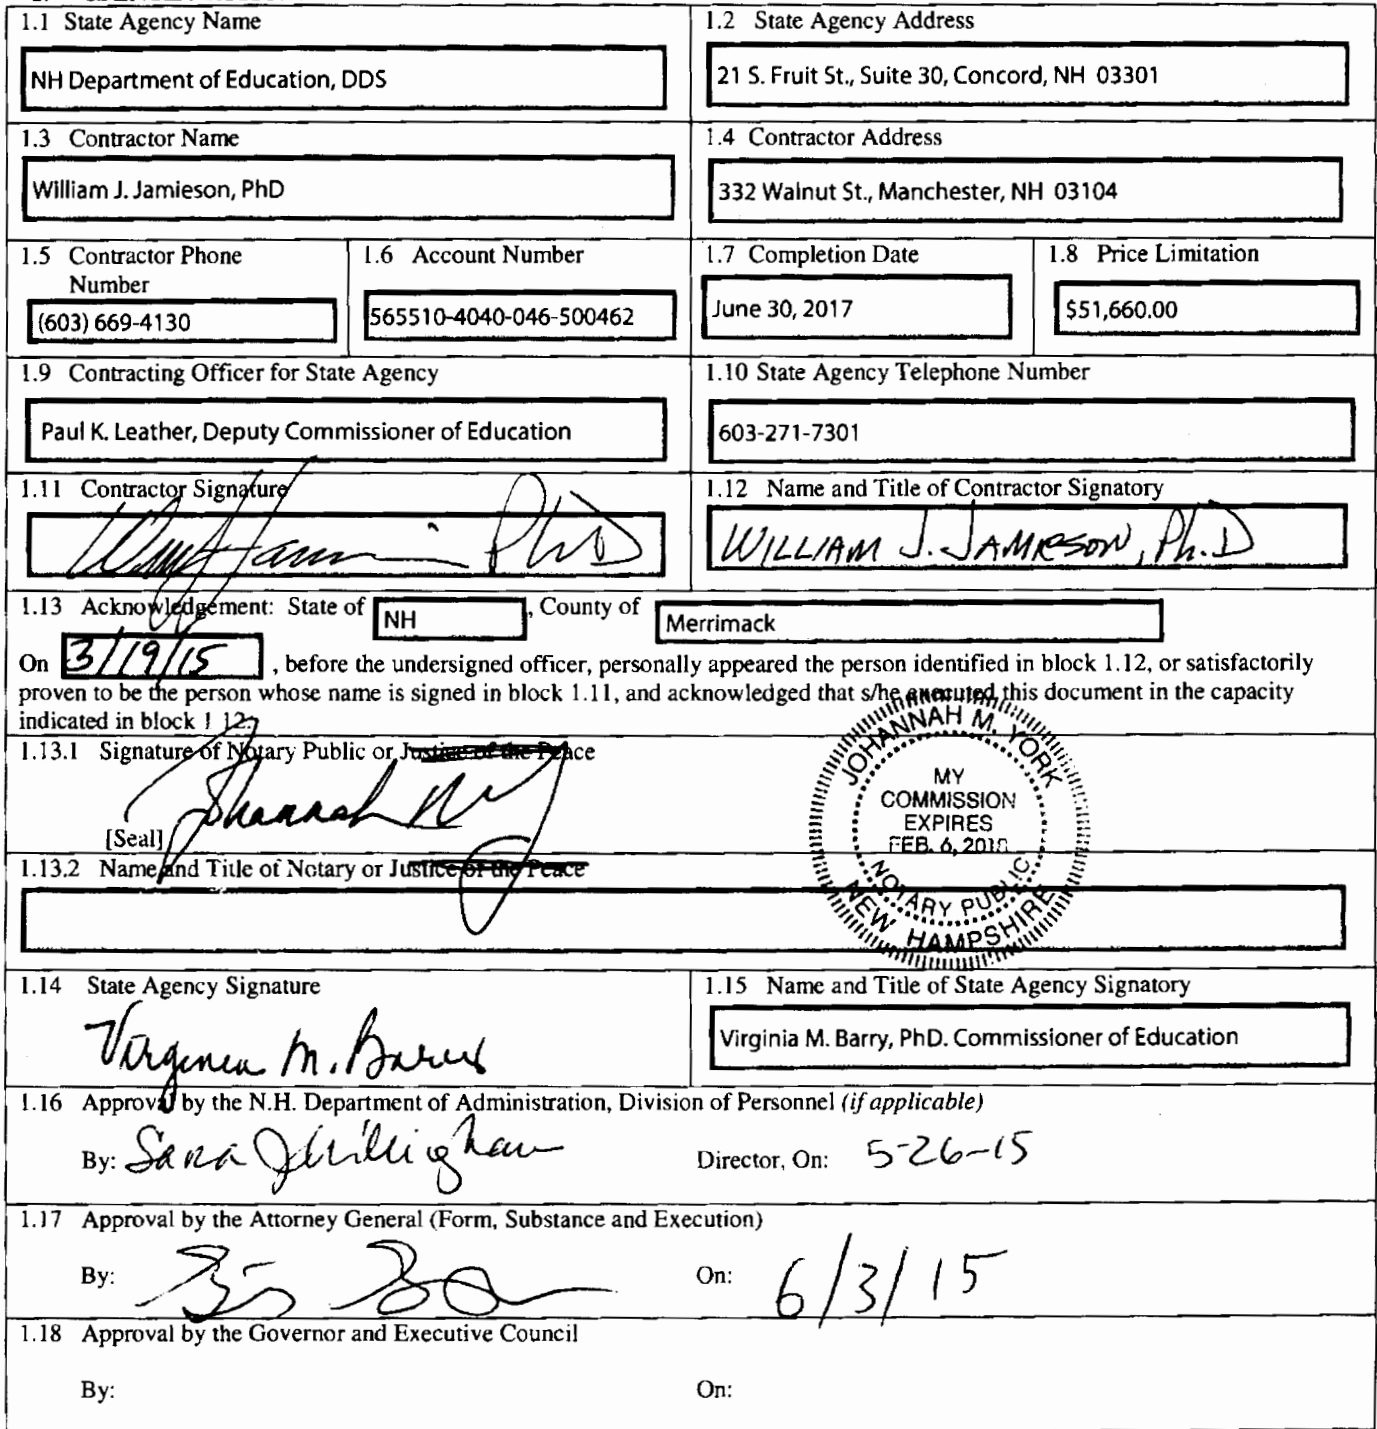 1.1 State Agency Name
NH Department of Education, DDS
1.2 State Agency Address
21 S. Fruit St., Suite 30, Concord, NH 03301
1.3 Contractor Name
William J. Jamieson, PhD
1.4 Contractor Address
332 Walnut St., Manchester, NH 03104
1.5 Contractor Phone
Number
(603) 669-4130
1.6 Account Number
565510-4040-046-500462
1.7 Completion Date
June 30, 2017
1.8 Price Limitation
$51,660.00
1.9 Contracting Officer for State Agency
Paul K. Leather, Deputy Commissioner of Education
1.10 State Agency Telephone Number
603-271-7301
1.11 Contractor Signature
PhD
1.12 Name and Title of Contractor Signatory
WILLIAM J. JAMIESON, Ph.D
1.13 Acknowledgement: State of NH, County of Merrimack
On 3/19/15, before the undersigned officer, personally appeared the person identified in block 1.12, or satisfactorily
proven to be the person whose name is signed in block 1.11, and acknowledged that s/he executed this document in the capacity
indicated in block 1.12.
1.13.1 Signature of Notary Public or Justice of the Peace
Johannah M
[Seal]
JOHANNAH M. YORK
MY
COMMISSION
EXPIRES
FEB. 6, 2018
NOTARY PUBLIC
NEW HAMPSHIRE
1.13.2 Name and Title of Notary or Justice of the Peace
1.14 State Agency Signature
Virginia M. Barry
1.15 Name and Title of State Agency Signatory
Virginia M. Barry, PhD. Commissioner of Education
1.16 Approval by the N.H. Department of Administration, Division of Personnel (if applicable)
By: Sara J Willingham
Director, On: 5-26-15
1.17 Approval by the Attorney General (Form, Substance and Execution)
By:
On: 6/3/15
1.18 Approval by the Governor and Executive Council
By:
On: